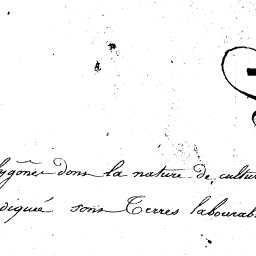 lygônes dont la nature de cultur
diquée sont Terres labourab